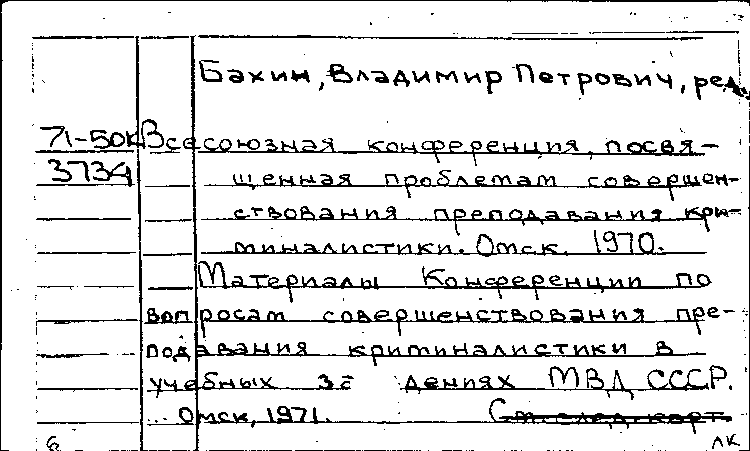 Бахин, Владимир Петрович, ред.
71-50К Всесоюзная конференция, посвя-
3734 щенная проблемам совершен-
ствования преподавания кри-
миналистики. Омск. 1970.
Материалы Конференции по
вопросам совершенствования пре-
подавания криминалистики в
учебных за дениях МВД СССР.
Омск, 1971. См. след. карт.
6 ЛК